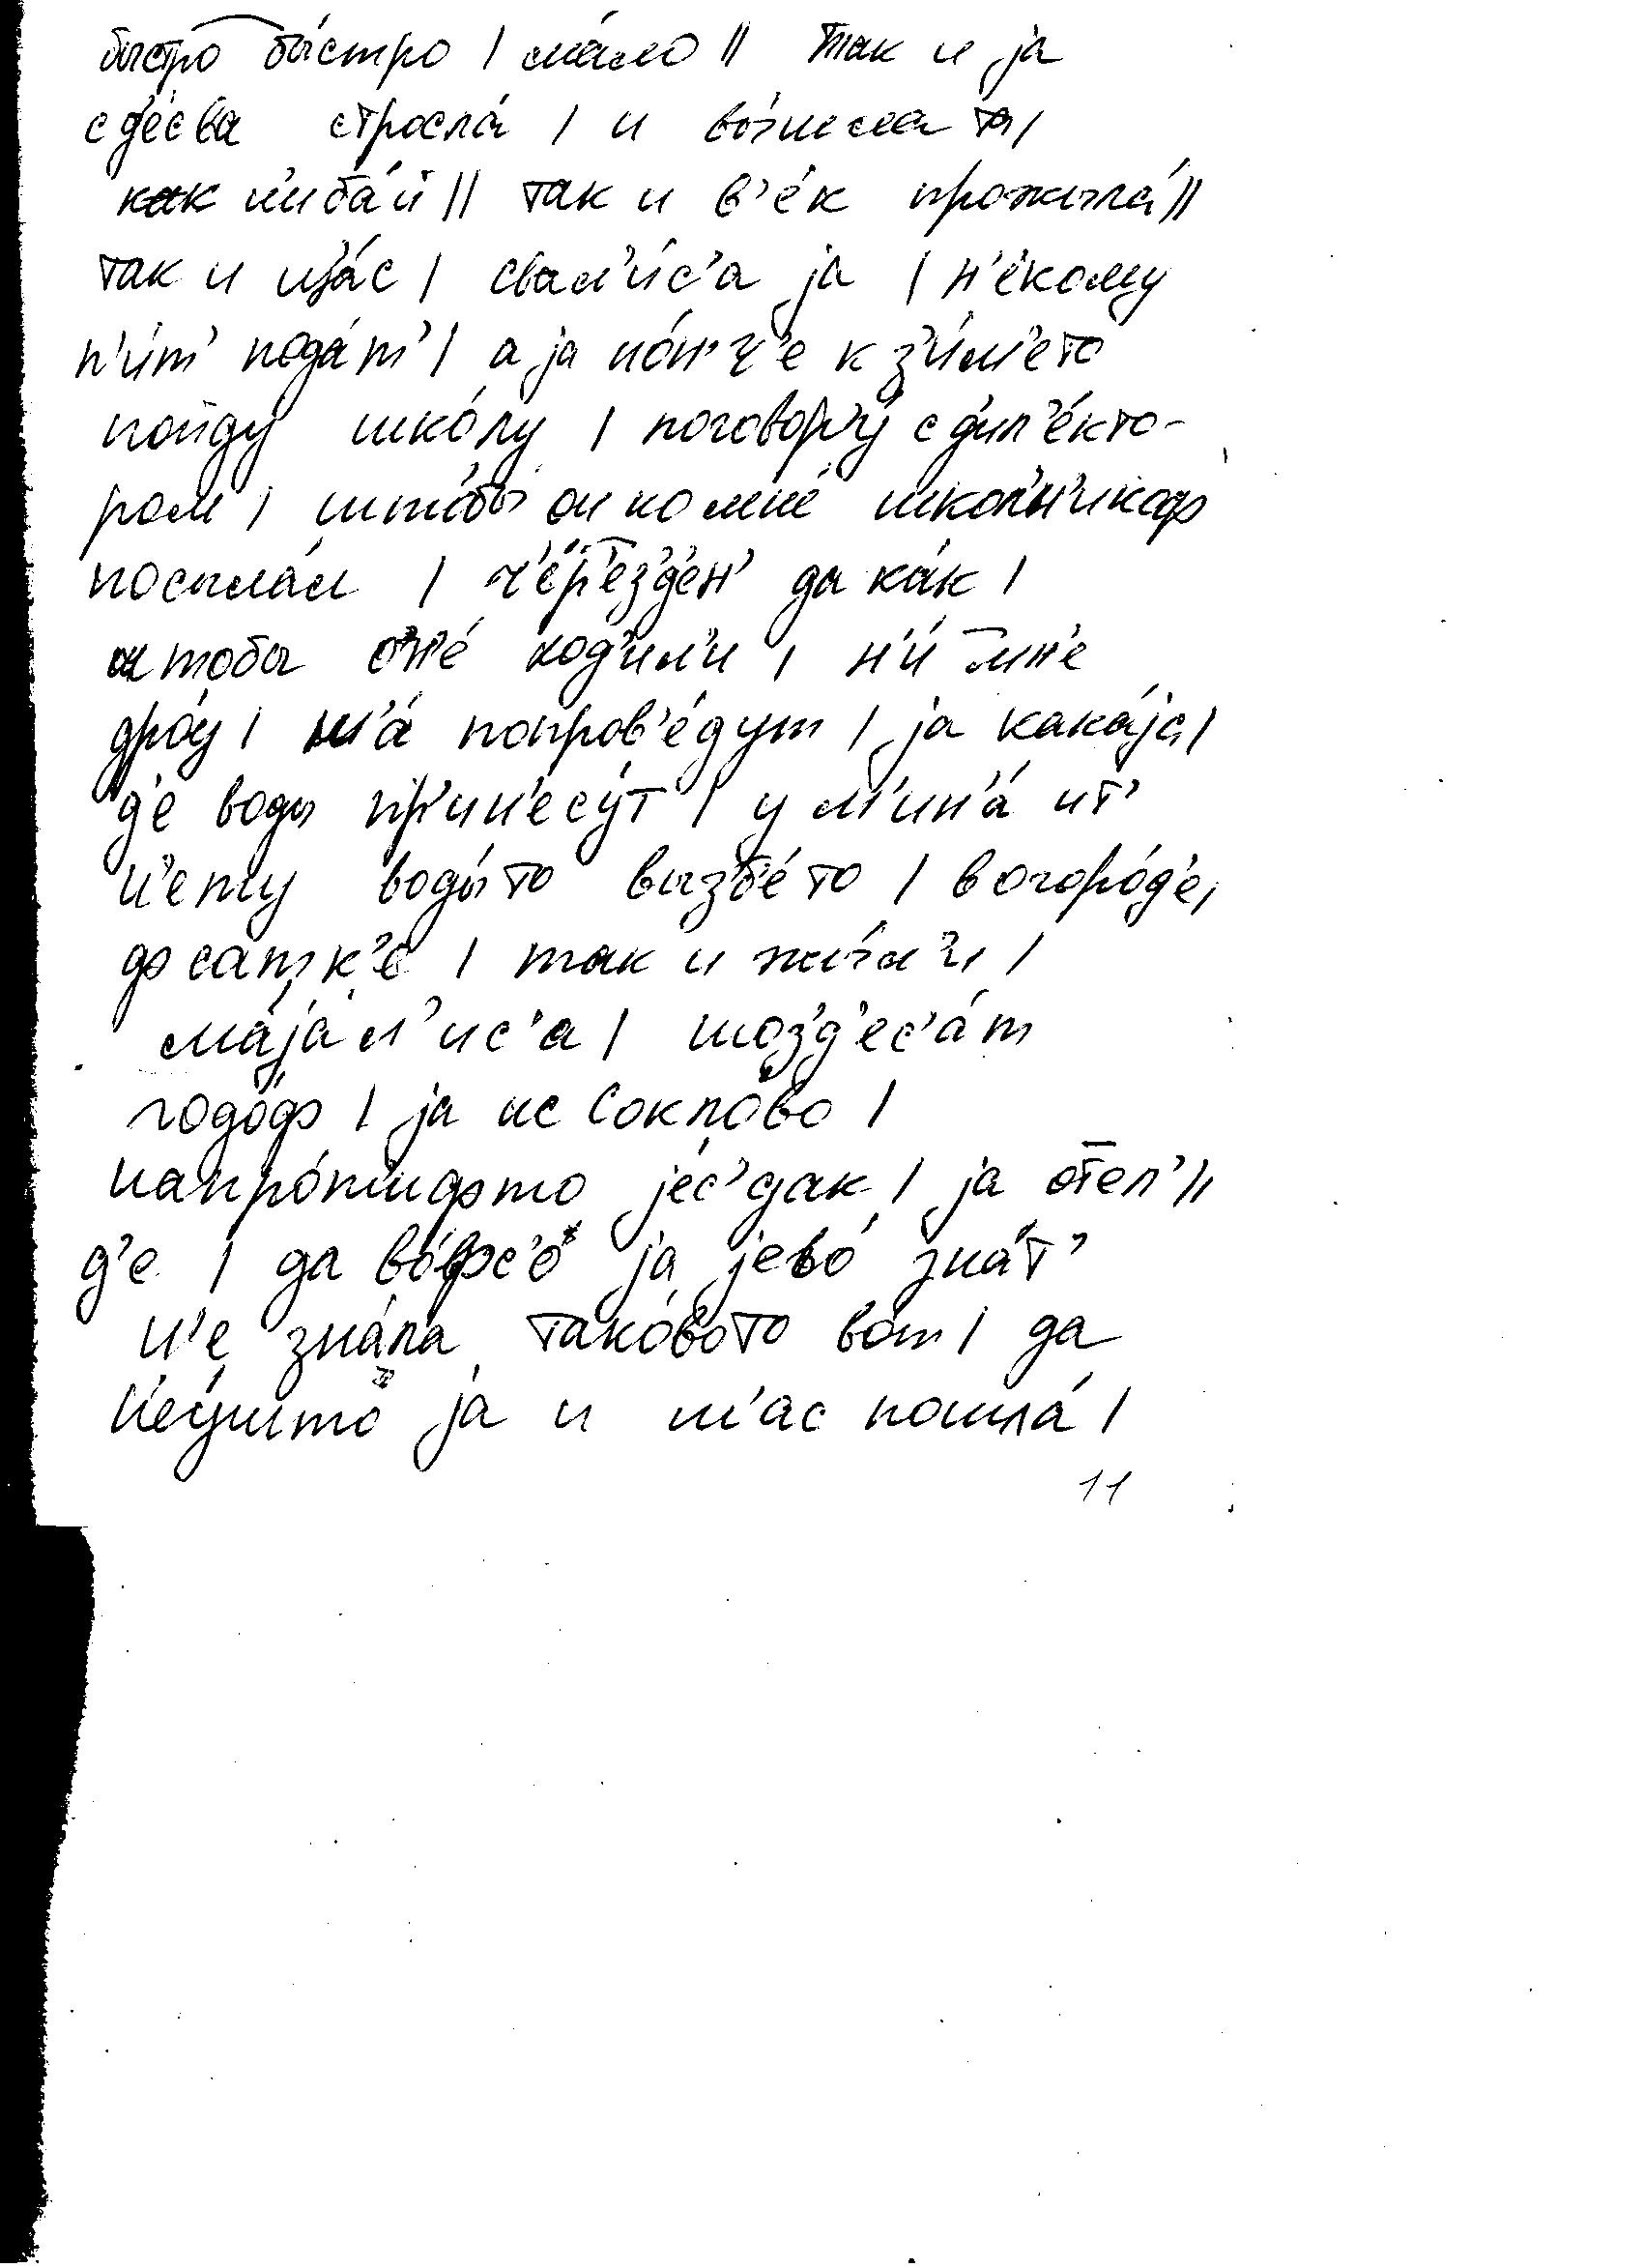 быстро бы́стро | ма́ло || так и ja
с д'е́сва стросла́ | и во́т
как н'иба́й || так и в'е́к прожыла́ ||
так и ш'а́с | свал'и́с'а ja | н'е́кому
п'и́т' пода́т' | а ja но́н'ч'е к з'и́м'е то
пойду́ шко́лу | поговор'у́ с д'ил'е́кто-
ром | што́бы он ко мне́ шко́л'н'икоф
посыла́л | ч'е́р'ез д'е́н' да ка́к |
штобы он'е́ ход'ил'и | н'и́ мн'е
дро́у | м'а́ попров'е́дут | ja кака́ja |
д'е воды пр'ин'есу́т | у м'ин'а́ ит'
н'ету воды́ то вызб'е́ то | в огоро́д'е |
ф сатк'е | так и жы́л'и |
ма́jал'ис'а | шоз'д'ес'а́т
годо́ф | ja не Соколо́во |
напро́т'ифто jе́с' дак | ja отел' ||
д'е | да во́фс'о ja jево́ зна́т'
н'е зна́ла тако́вото во́т | да
н'еу́што ja и ш'ас пошла́ |
11